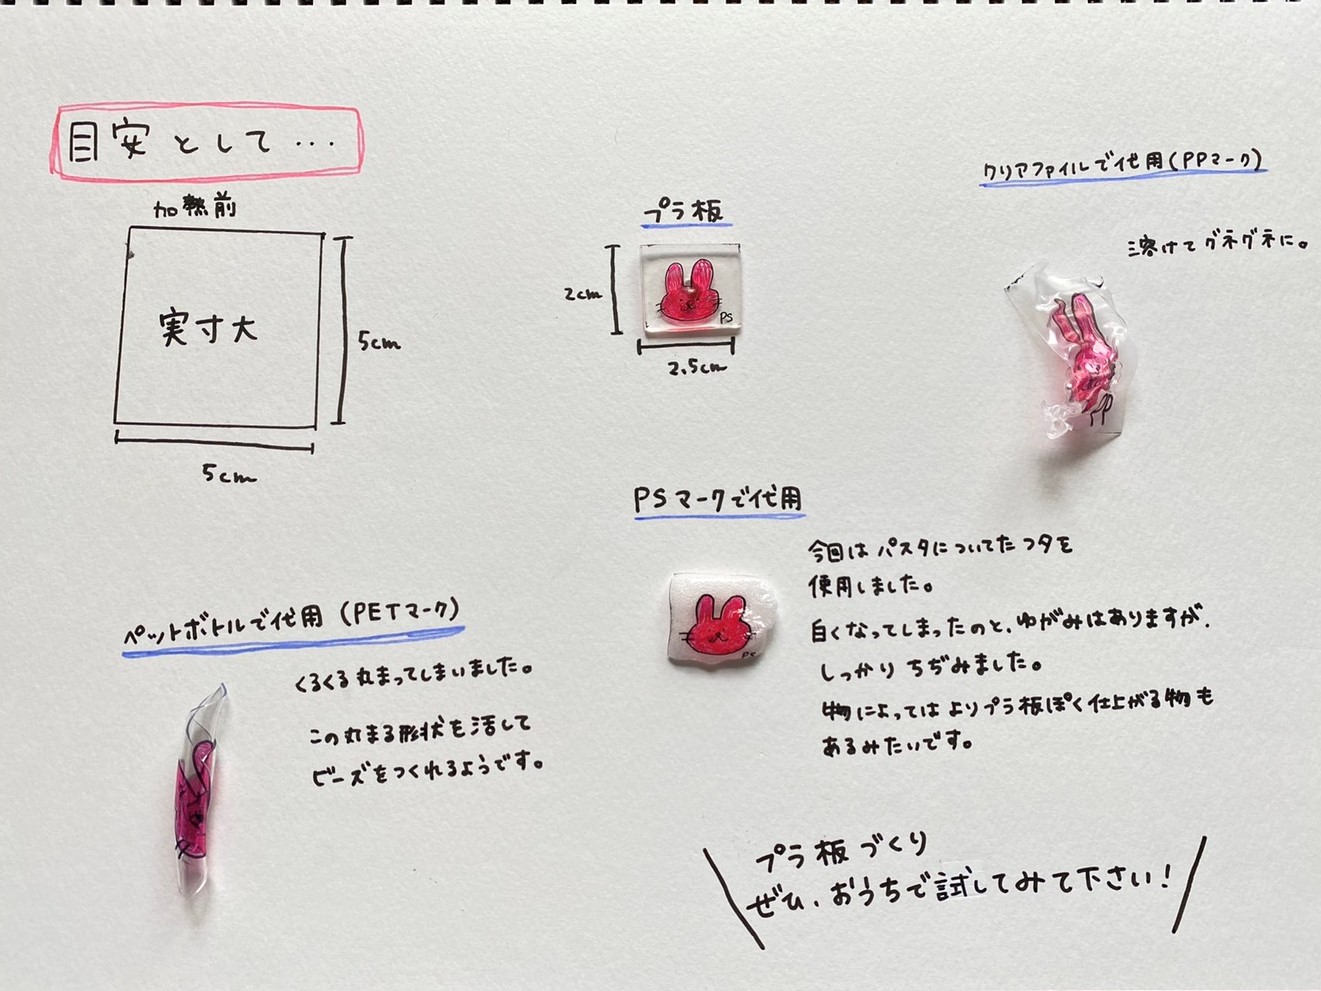 目安として…
加熱前
実寸大
5cm
5cm
プラ板
2cm
PS
2.5cm
クリアファイルで代用(PPマーク)
溶けてグネグネに。
PP
PSマークで代用
今回はパスタについてたフタを
使用しました。
白くなってしまったのと、ゆがみはありますが、
しっかりちぢみました。
物によってはよりプラ板ぽく仕上がる物も
あるみたいです。
PS
ペットボトルで代用(PETマーク)
くるくる丸まってしまいました。
この丸まる形状を活して
ビーズをつくれるようです。
プラ板づくり
ぜひ、おうちで試してみて下さい!